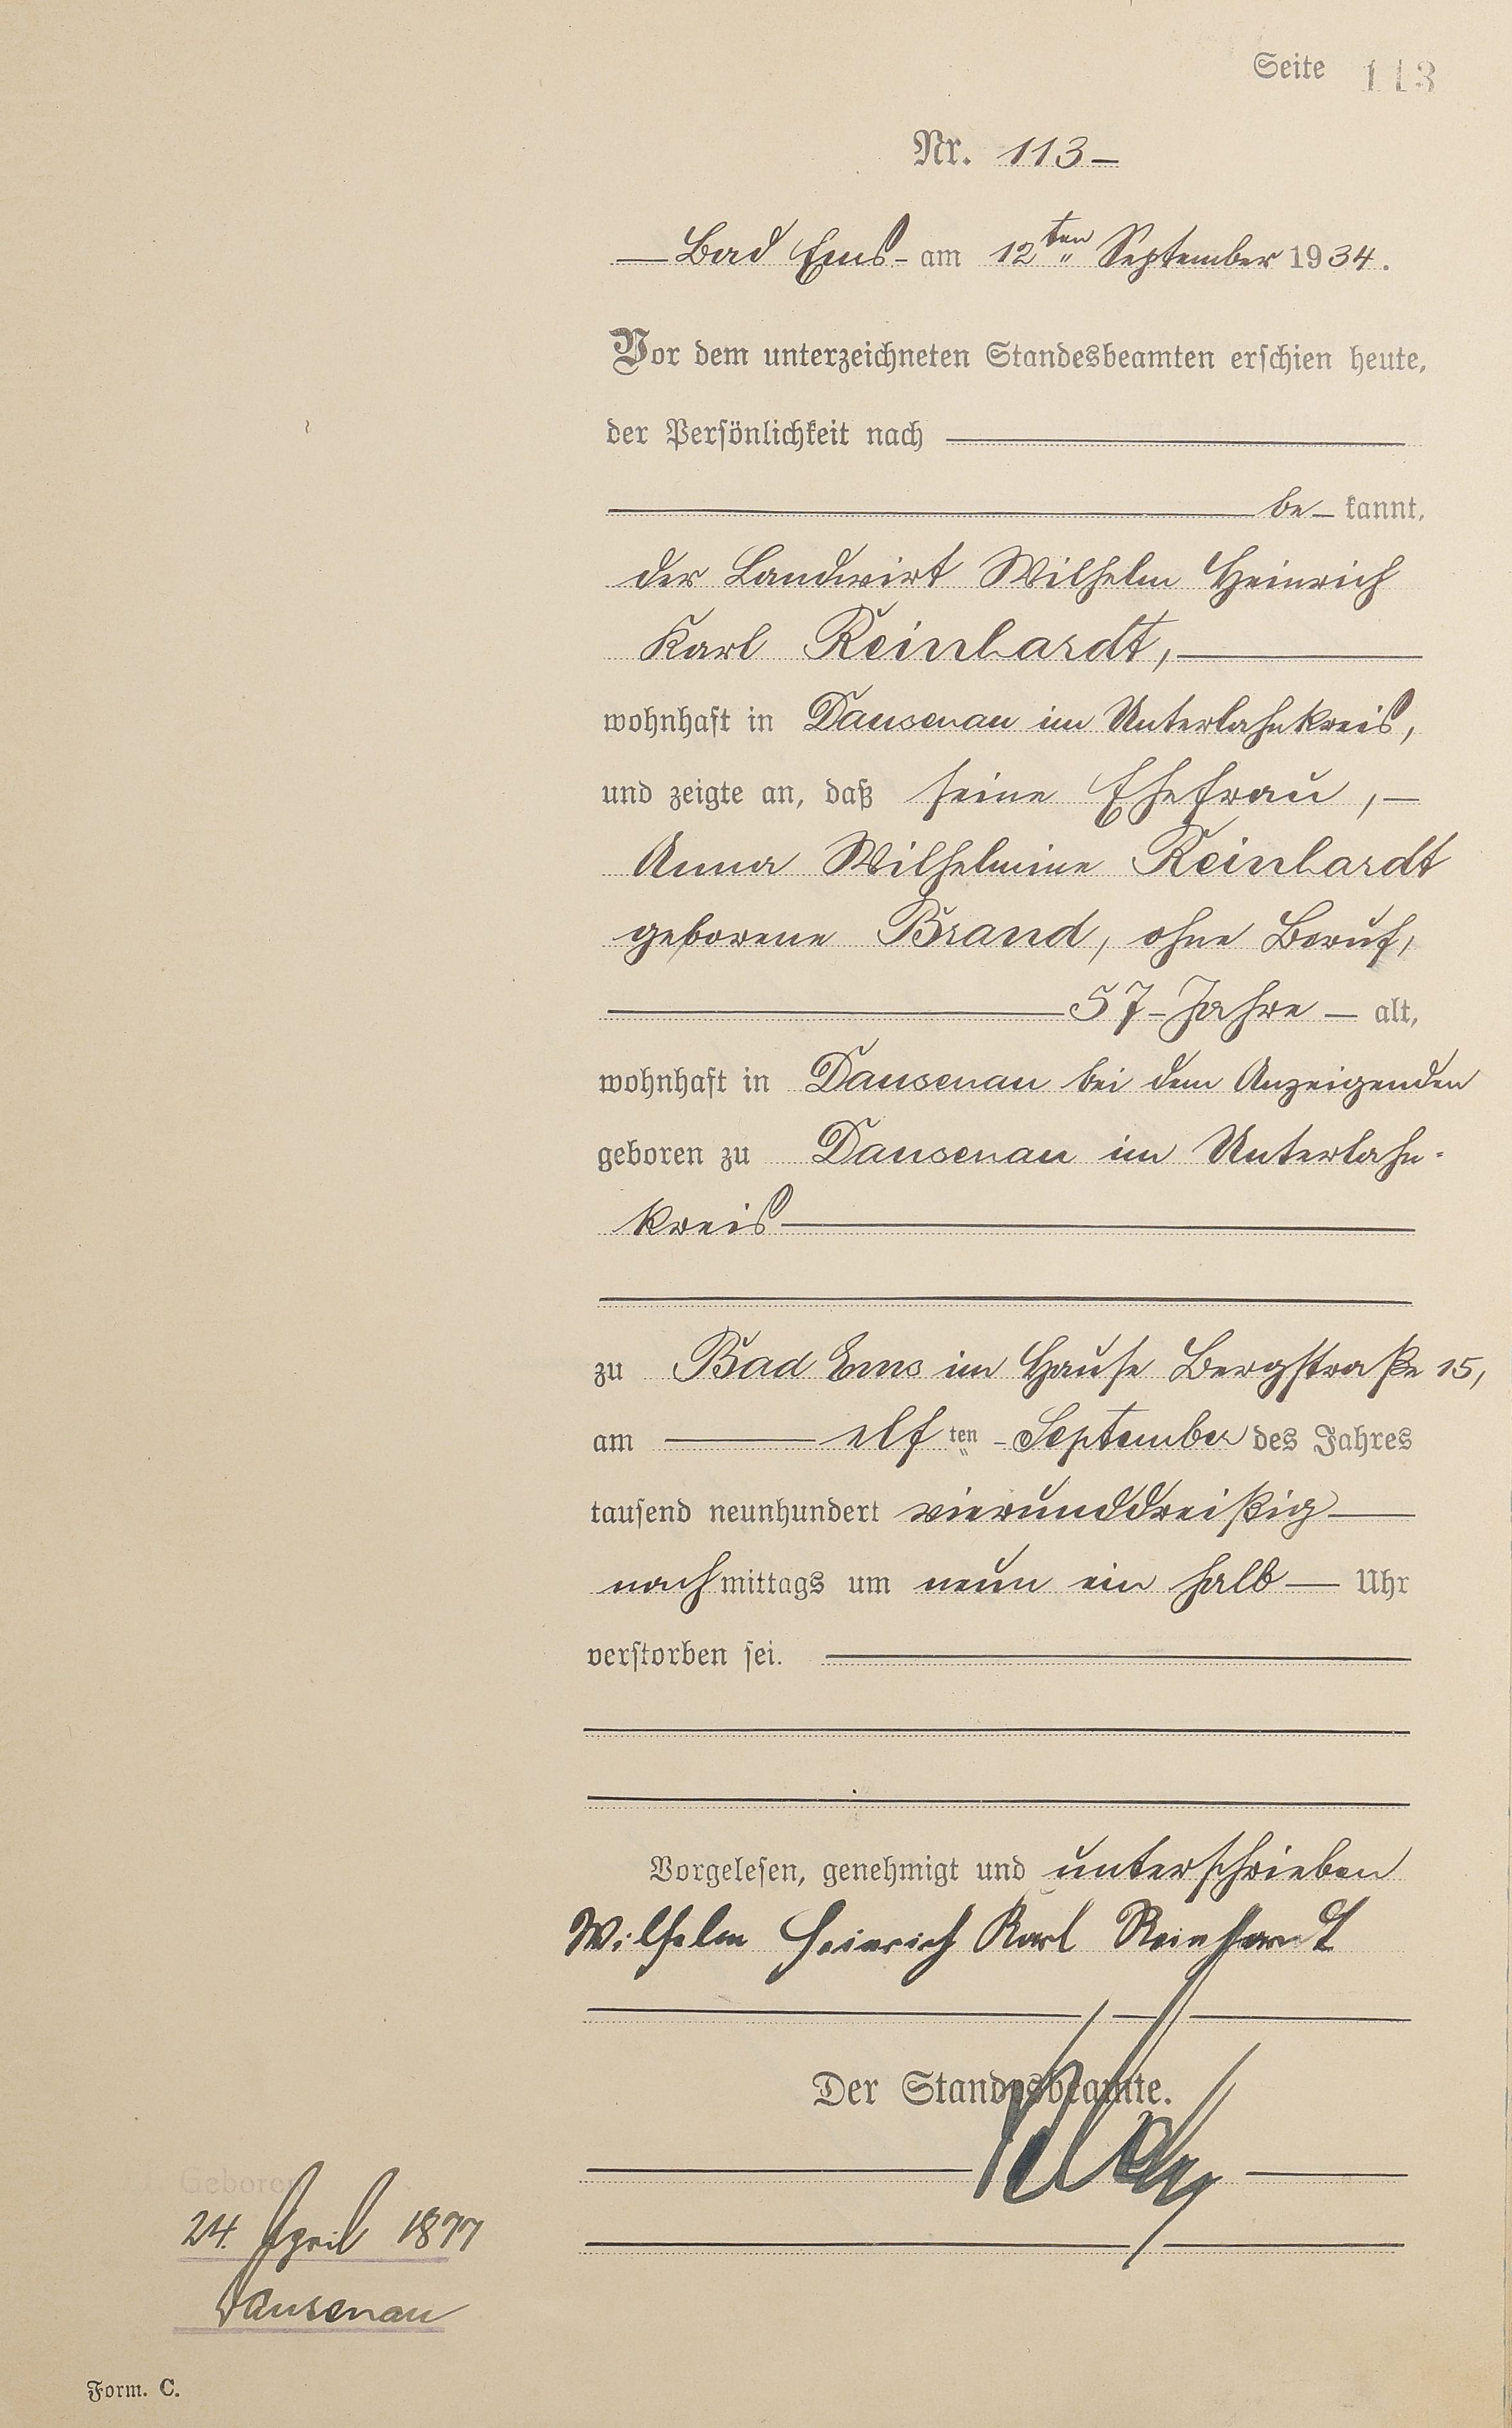 Seite 113
Nr. 113 —
— Bad Ems - am 12ten September 1934.
Vor dem unterzeichneten Standesbeamten erschien heute,
der Persönlichkeit nach
be — kannt,
der Landwirt Wilhelm Heinrich
Karl Reinhardt,
wohnhaft in Dausenau im Unterlahnkreis,
und zeigte an, daß seine Ehefrau, —
Anna Wilhelmine Reinhardt
geborene Brand, ohne Beruf,
57 - Jahre — alt,
wohnhaft in Dausenau bei dem Anzeigenden
geboren zu Dausenau im Unterlahn-
kreis
zu Bad Ems im Hause Bergstraße 15,
am elften - September des Jahres
tausend neunhundert vierunddreißig
nachmittags um neun ein halb — Uhr
verstorben sei.
Vorgelesen, genehmigt und unterschrieben
Wilhelm Heinrich Karl Reinhardt
Der Standesbeamte.
Geboren
24. April 1877
Dausenau
Form. C.